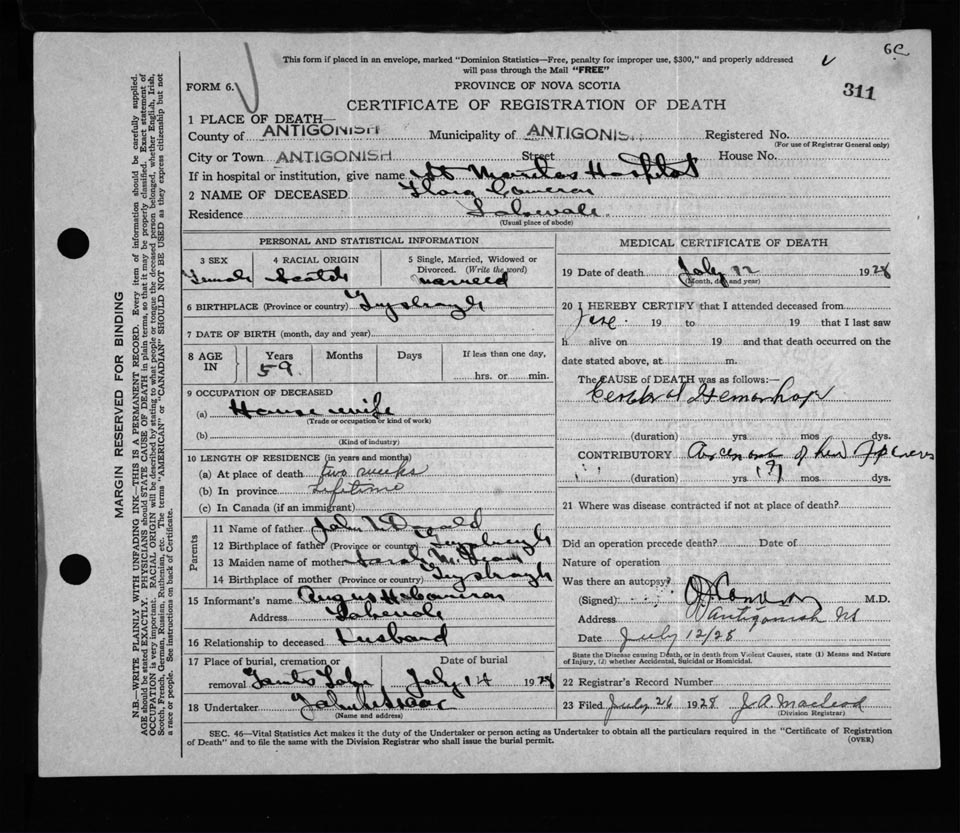 6c
This form if placed in an envelope, marked "Dominion Statistics—Free, penalty for improper use, $300," and properly addressed
will pass through the Mail "FREE"
311
FORM 6.
PROVINCE OF NOVA SCOTIA
CERTIFICATE OF REGISTRATION OF DEATH
1 PLACE OF DEATH—
County of ANTIGONISH Municipality of ANTIGONISH Registered No.
(For use of Registrar General only)
City or Town ANTIGONISH Street House No.
If in hospital or institution, give name St Martha's Hospital
2 NAME OF DECEASED Flora Cameron
Residence Lakevale
(Usual place of abode)
PERSONAL AND STATISTICAL INFORMATION
3 SEX 4 RACIAL ORIGIN 5 Single, Married, Widowed or Divorced. (Write the word)
Female Scotch Married
6 BIRTHPLACE (Province or country) Guysborough
7 DATE OF BIRTH (month, day and year)
8 AGE IN Years Months Days If less than one day,
59
hrs. or min.
9 OCCUPATION OF DECEASED
(a) House wife
(Trade or occupation or kind of work)
(b)
(Kind of industry)
10 LENGTH OF RESIDENCE (in years and months)
(a) At place of death two weeks
(b) In province Lifetime
(c) In Canada (if an immigrant)
Parents
11 Name of father John McDonald
12 Birthplace of father (Province or country) Guysborough
13 Maiden name of mother Sarah
14 Birthplace of mother (Province or country) Guysborough
15 Informant's name Angus H Cameron
Address Lakevale
16 Relationship to deceased Husband
17 Place of burial, cremation or Date of burial
removal July 14 1928
18 Undertaker John
(Name and address)
MEDICAL CERTIFICATE OF DEATH
19 Date of death July 12 1928
(Month, day and year)
20 I HEREBY CERTIFY that I attended deceased from
19 to 19 that I last saw
h alive on 19 and that death occurred on the
date stated above, at m.
The CAUSE OF DEATH was as follows:—
Cerebral Hemorrhage
(duration) yrs mos dys.
CONTRIBUTORY
(duration) yrs (?) mos dys.
21 Where was disease contracted if not at place of death?
Did an operation precede death? Date of
Nature of operation
Was there an autopsy?
(Signed) M.D.
Address Antigonish NS
Date July 12/28
State the Disease causing Death, or in death from Violent Causes, state (1) Means and Nature
of Injury, (2) whether Accidental, Suicidal or Homicidal.
22 Registrar's Record Number
23 Filed July 26 1928 J. A. Macleod
(Division Registrar)
SEC. 46—Vital Statistics Act makes it the duty of the Undertaker or person acting as Undertaker to obtain all the particulars required in the "Certificate of Registration
of Death" and to file the same with the Division Registrar who shall issue the burial permit.
(OVER)
MARGIN RESERVED FOR BINDING
N.B.—WRITE PLAINLY WITH UNFADING INK—THIS IS A PERMANENT RECORD. Every item of information should be carefully supplied.
AGE should be stated EXACTLY. PHYSICIANS should STATE CAUSE OF DEATH in plain terms, so that it may be properly classified. Exact statement of
OCCUPATION is very important. RACIAL ORIGIN will be described by stating to what people or tongue the deceased person belonged, whether English, Irish,
Scotch, French, German, Russian, Ruthenian, etc. The terms "AMERICAN" or "CANADIAN" SHOULD NOT BE USED as they express citizenship but not
a race or people. See instructions on back of Certificate.